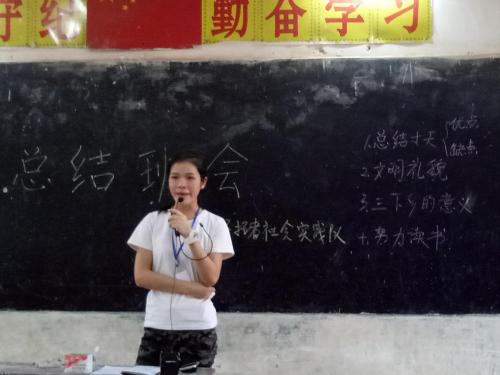 守纪
勤奋学习
总结班会
拓者社会实践队
1.总结十天
优点
缺点
2.文明礼貌
3.三下乡的意义
4.努力读书